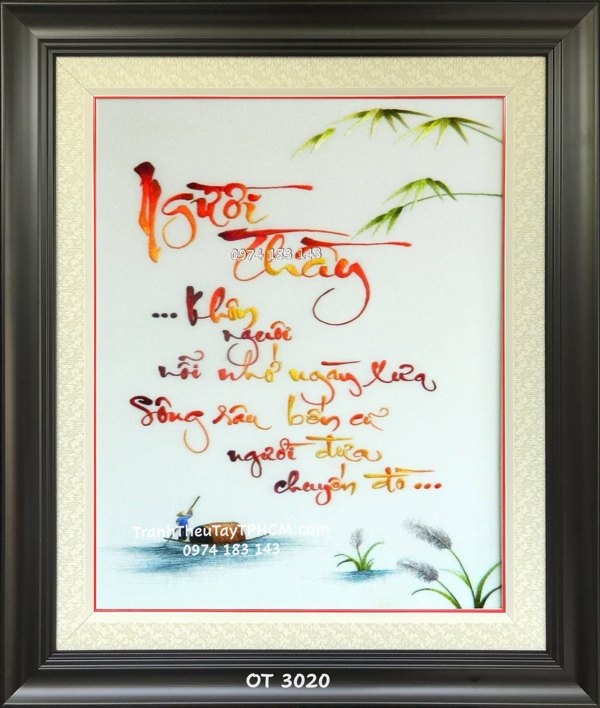 Người
Thầy
0974 183 143
... Khôn
nguôi
nỗi nhớ ngày xưa
Sông sâu bến cũ
người đưa
chuyến đò ...
TranhTheuTayTPHCM.com
0974 183 143
OT 3020